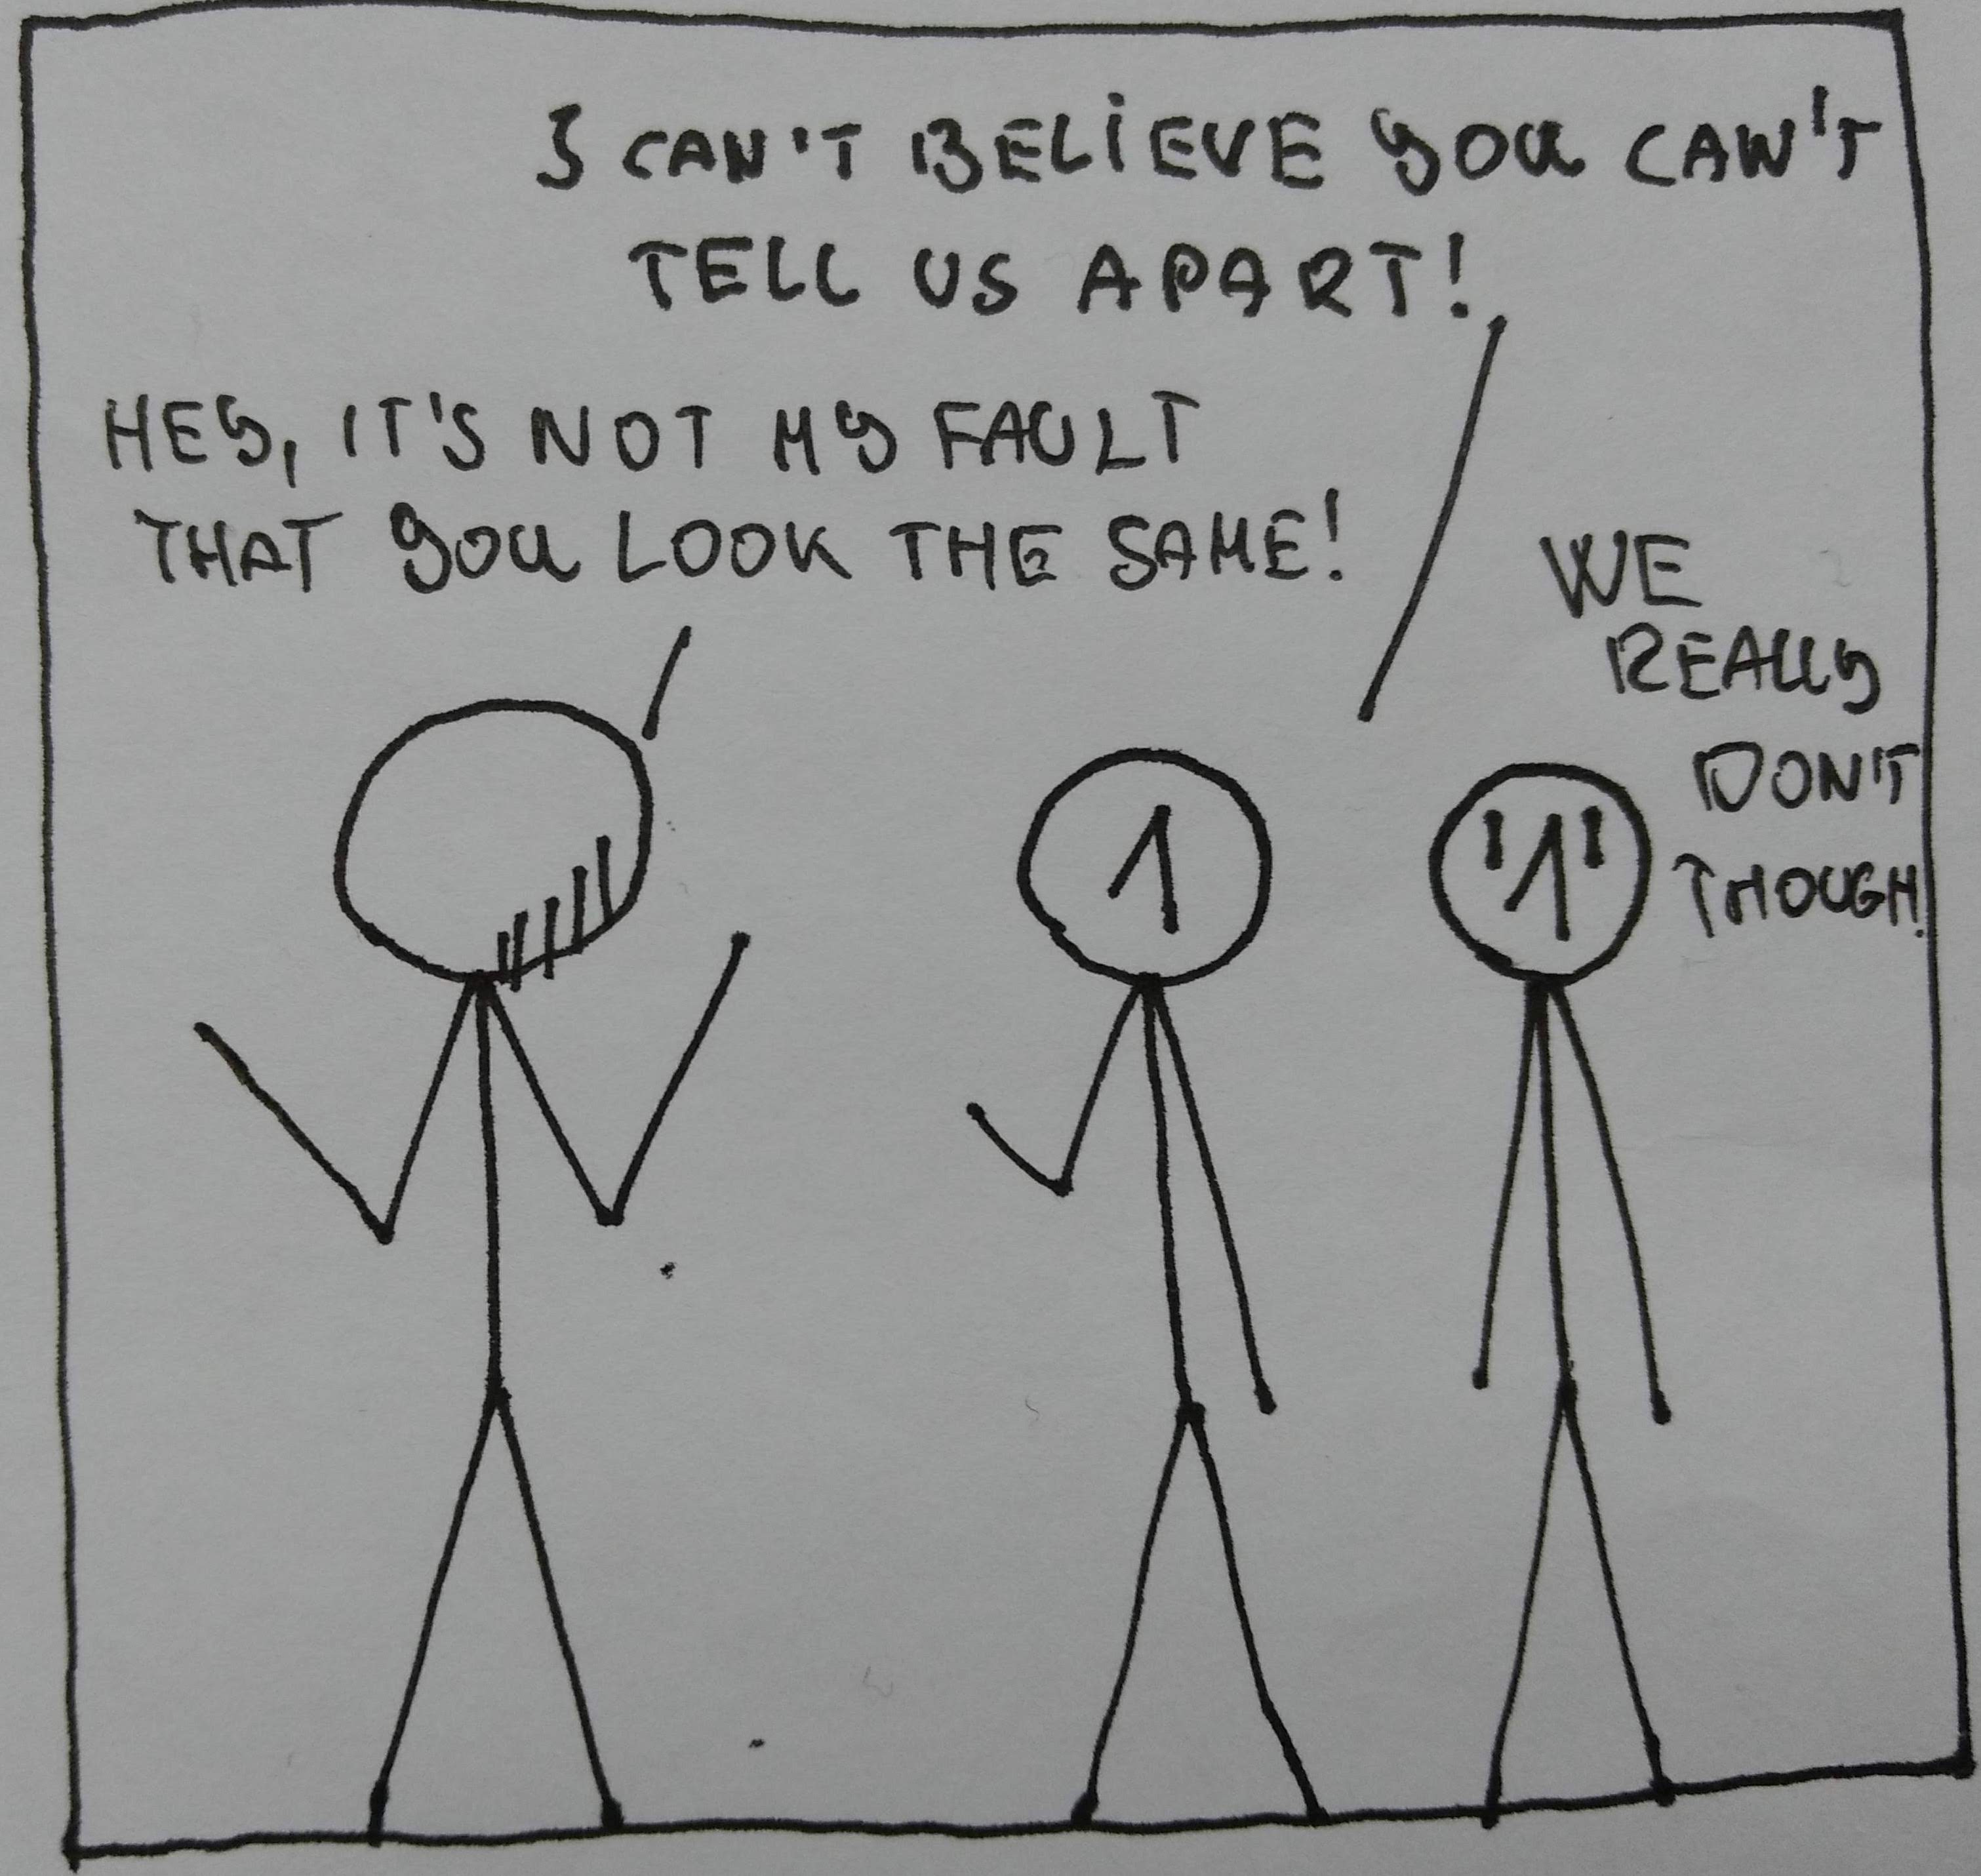 I CAN'T BELIEVE YOU CAN'T
TELL US APART!
HEY, IT'S NOT MY FAULT
THAT YOU LOOK THE SAME!
WE
REALLY
DON'T
THOUGH!
1
'1'